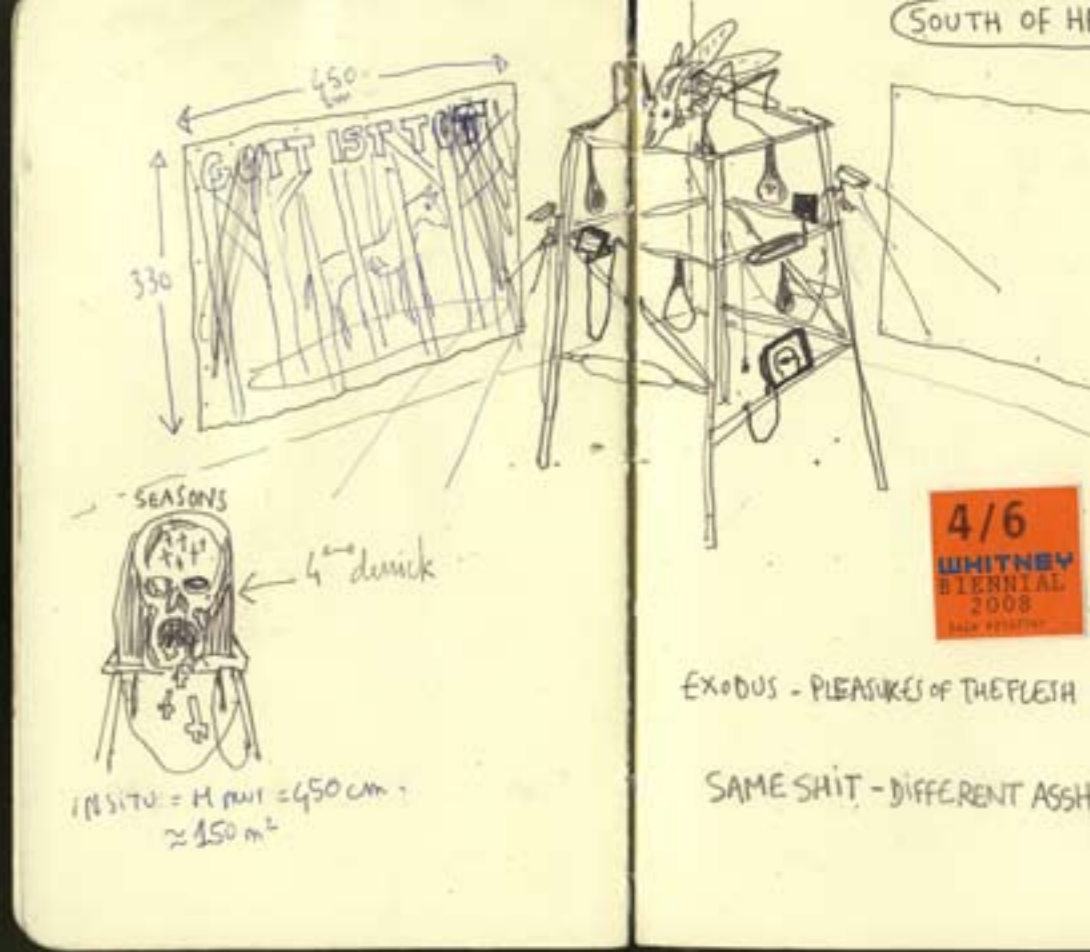 450
cm
GOTT IST TOT
330
SEASONS
4ème derrick
INSITU = H mur = 450 cm.
≈ 150 m²
SOUTH OF HE
4/6
WHITNEY
BIENNIAL
2008
EXODUS - PLEASURES OF THE FLESH
SAME SHIT - DIFFERENT ASSH